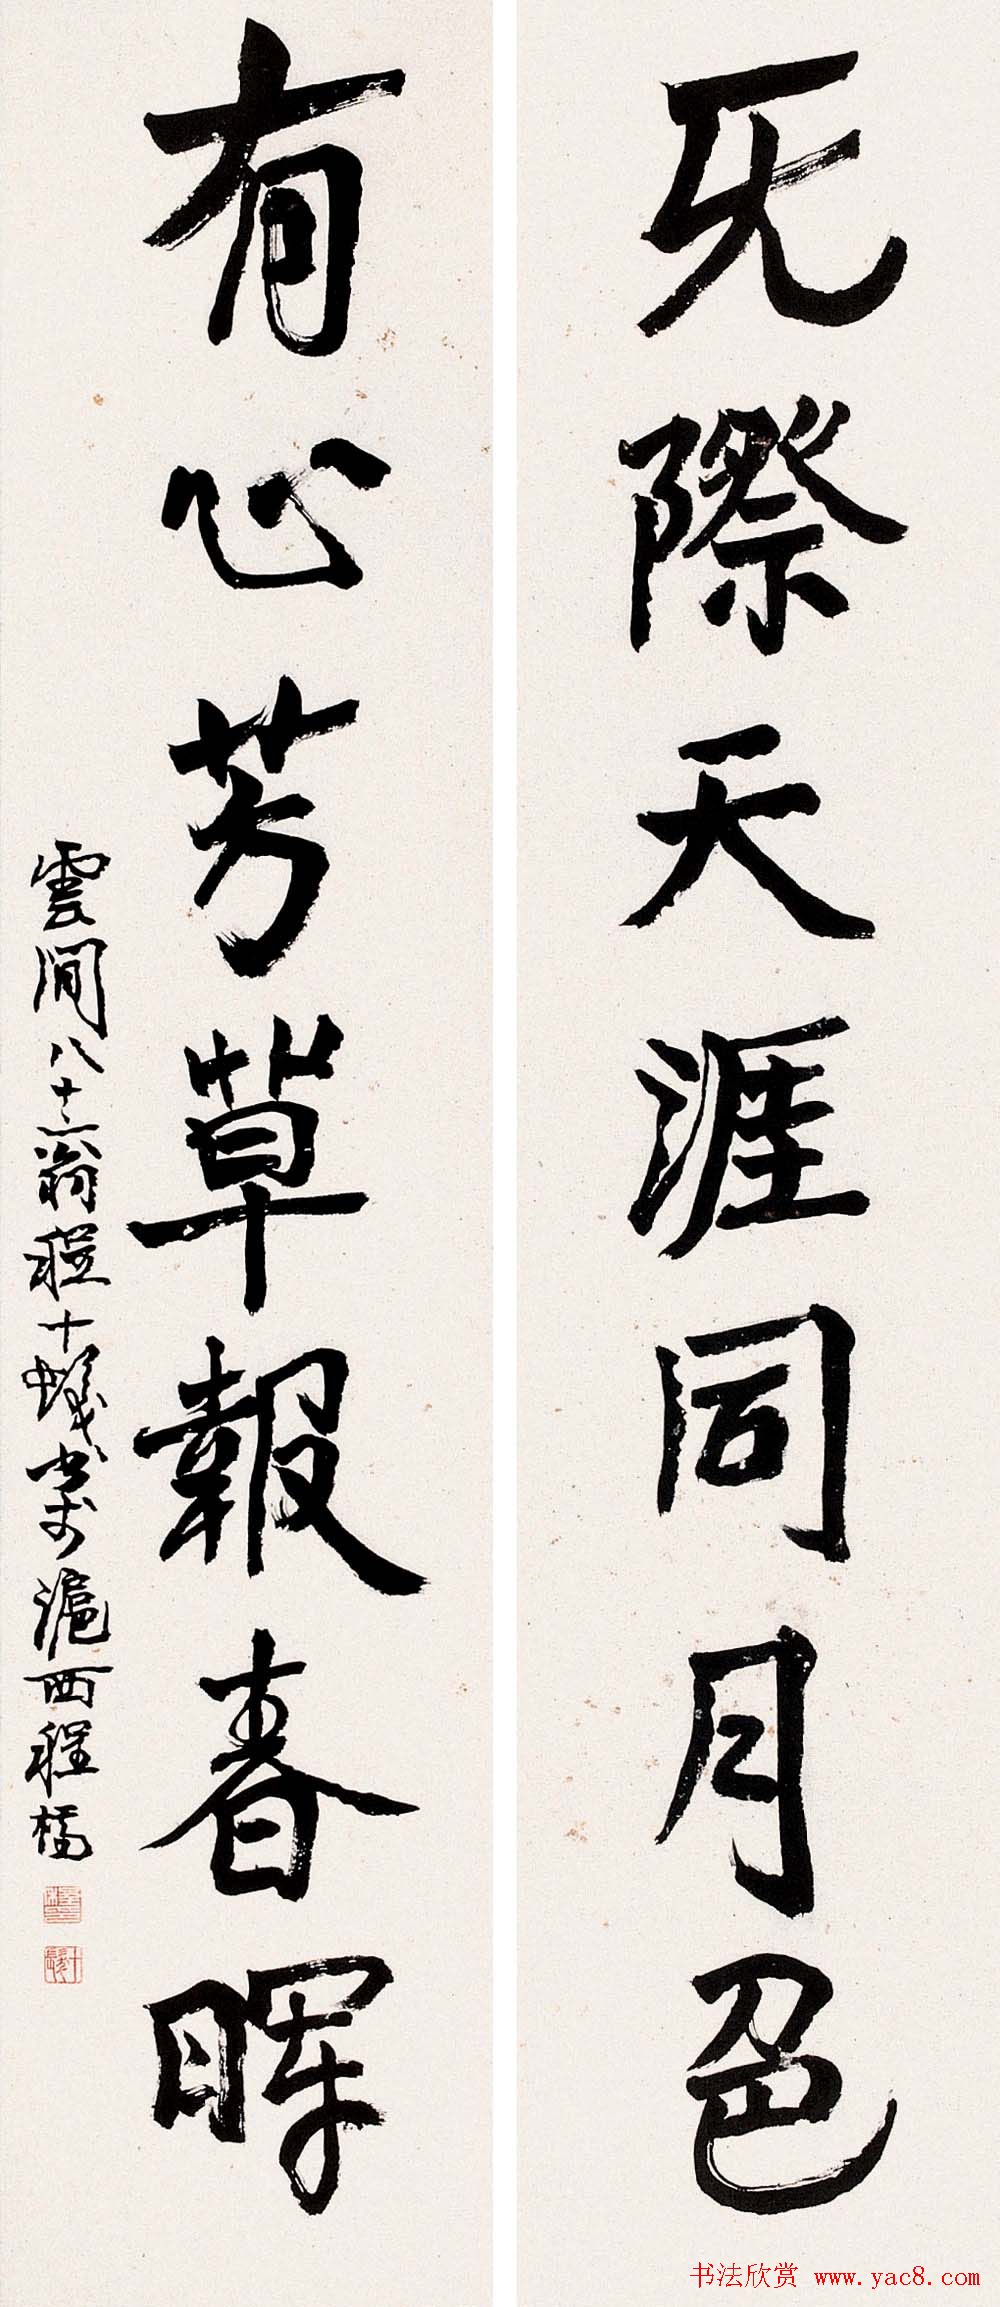 无際天涯同月色
有心芳草報春暉
雲間八十二翁程十髮書於滬西程橋
书法欣赏 www.yac8.com